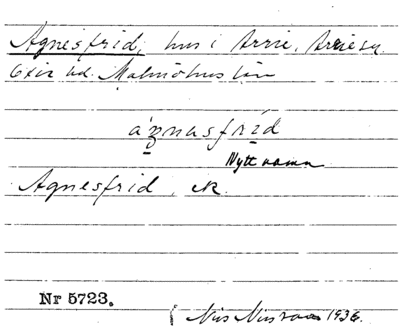 Agnesfrid, hus i Arrie, Arrie sn.
Oxie hd. Malmöhus län
Nytt namn
Agnesfrid, ek.
Nr 5723.
Nils Nilsson 1936.